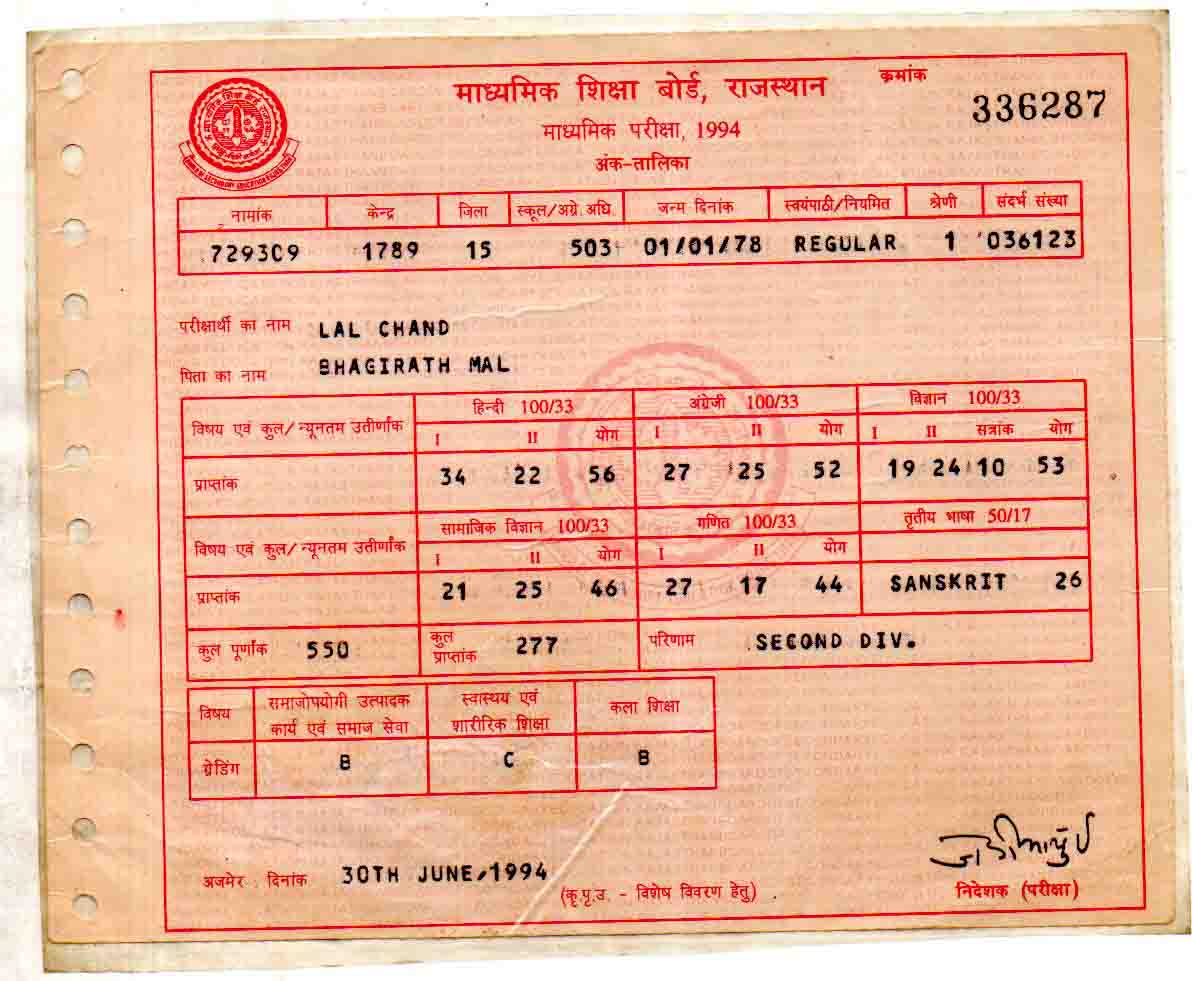 माध्यमिक शिक्षा बोर्ड, राजस्थान
क्रमांक
336287
माध्यमिक परीक्षा, 1994
अंक-तालिका
नामांक केन्द्र जिला स्कूल/अग्रे.अधि. जन्म दिनांक स्वयंपाठी/नियमित श्रेणी संदर्भ संख्या
729309 1789 15 503 01/01/78 REGULAR 1 036123
परीक्षार्थी का नाम LAL CHAND
पिता का नाम BHAGIRATH MAL
विषय एवं कुल/न्यूनतम उतीर्णांक हिन्दी 100/33 अंग्रेजी 100/33 विज्ञान 100/33
I II योग I II योग I II सत्रांक योग
प्राप्तांक 34 22 56 27 25 52 19 24 10 53
विषय एवं कुल/न्यूनतम उतीर्णांक सामाजिक विज्ञान 100/33 गणित 100/33 तृतीय भाषा 50/17
I II योग I II योग
प्राप्तांक 21 25 46 27 17 44 SANSKRIT 26
कुल पूर्णांक 550 कुल प्राप्तांक 277 परिणाम SECOND DIV.
विषय समाजोपयोगी उत्पादक कार्य एवं समाज सेवा स्वास्थय एवं शारीरिक शिक्षा कला शिक्षा
ग्रेडिंग B C B
अजमेर दिनांक 30TH JUNE, 1994
(कृ.पृ.उ. - विशेष विवरण हेतु)
निदेशक (परीक्षा)